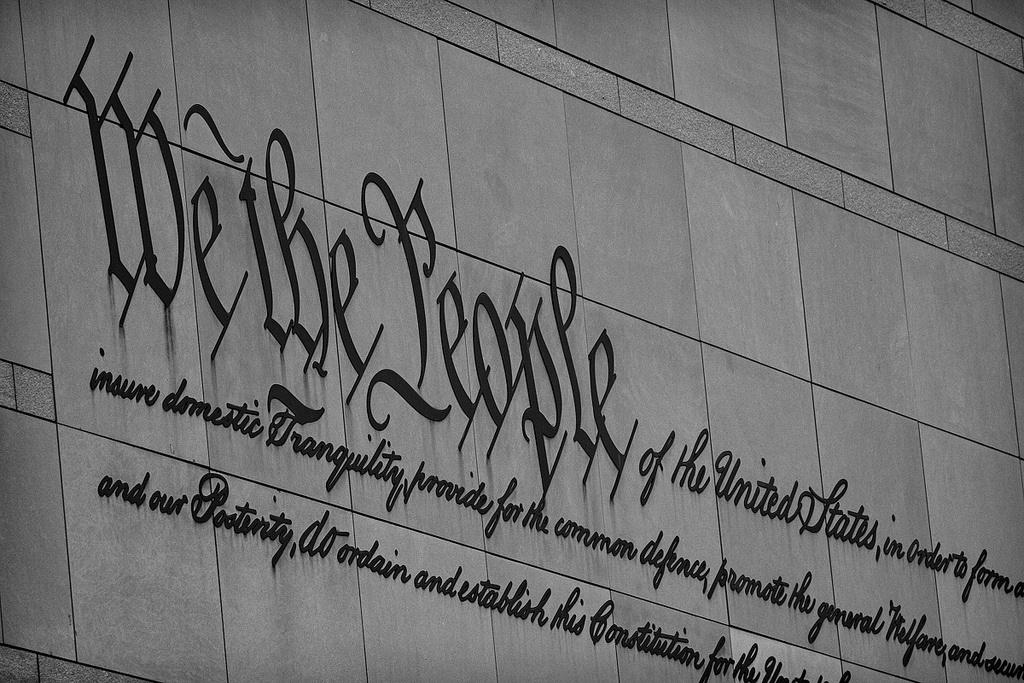 We the People of the United States, in Order to form a
insure domestic Tranquility, provide for the common defence, promote the general Welfare, and secur
and our Posterity, do ordain and establish this Constitution for the